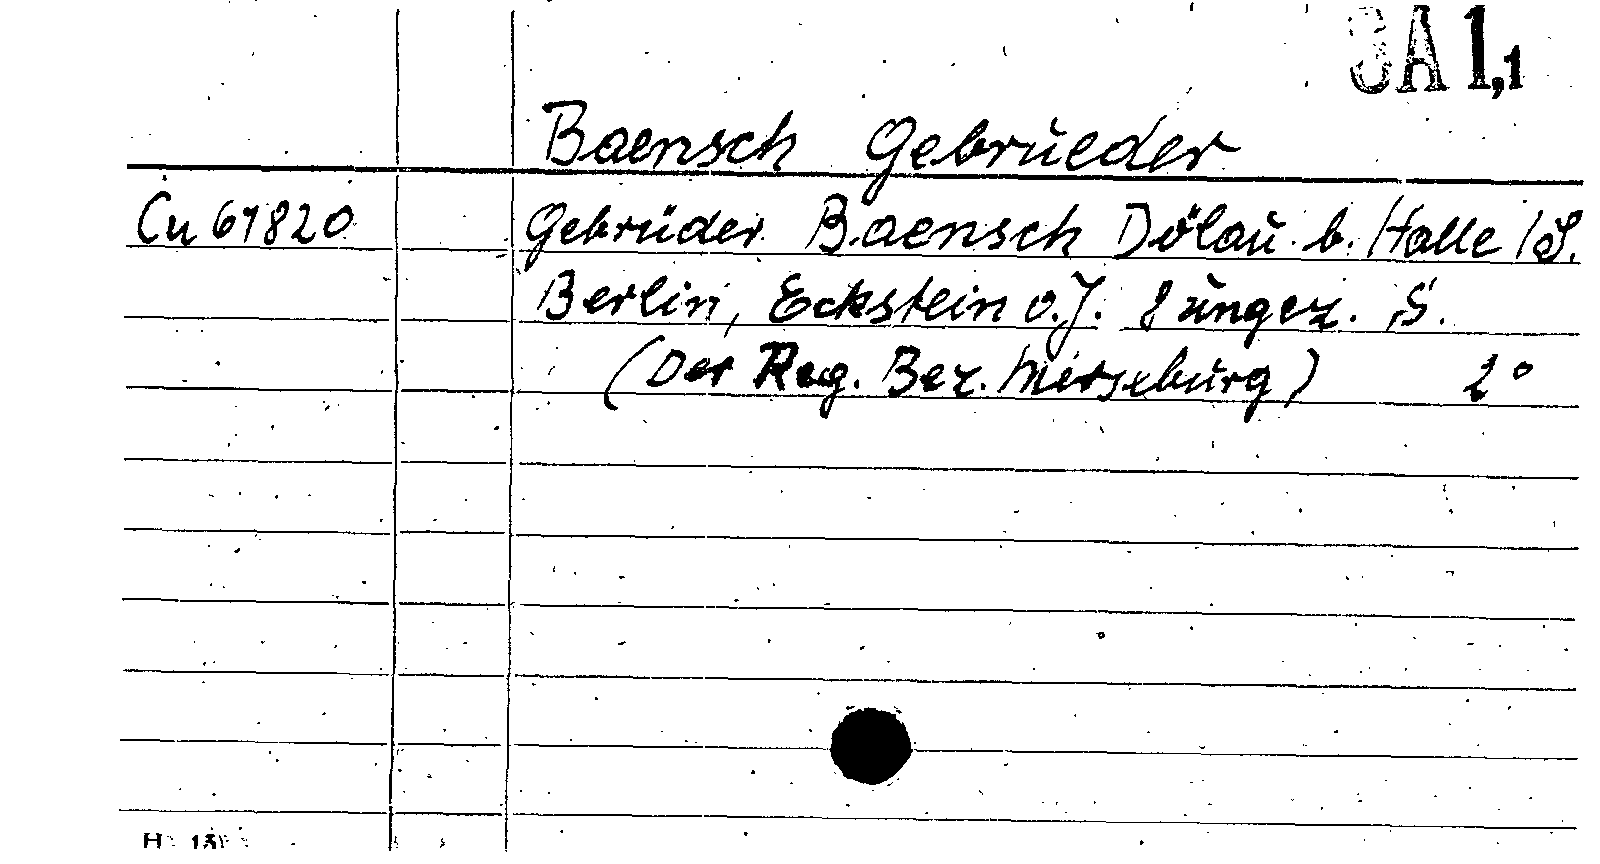 SA 1,1
Baensch Gebrueder
Cu 61820 Gebrüder Baensch Dölau b. Halle /S.
Berlin, Eckstein o.J. 8 ungez. S.
(Der Reg. Bez. Merseburg) 2°